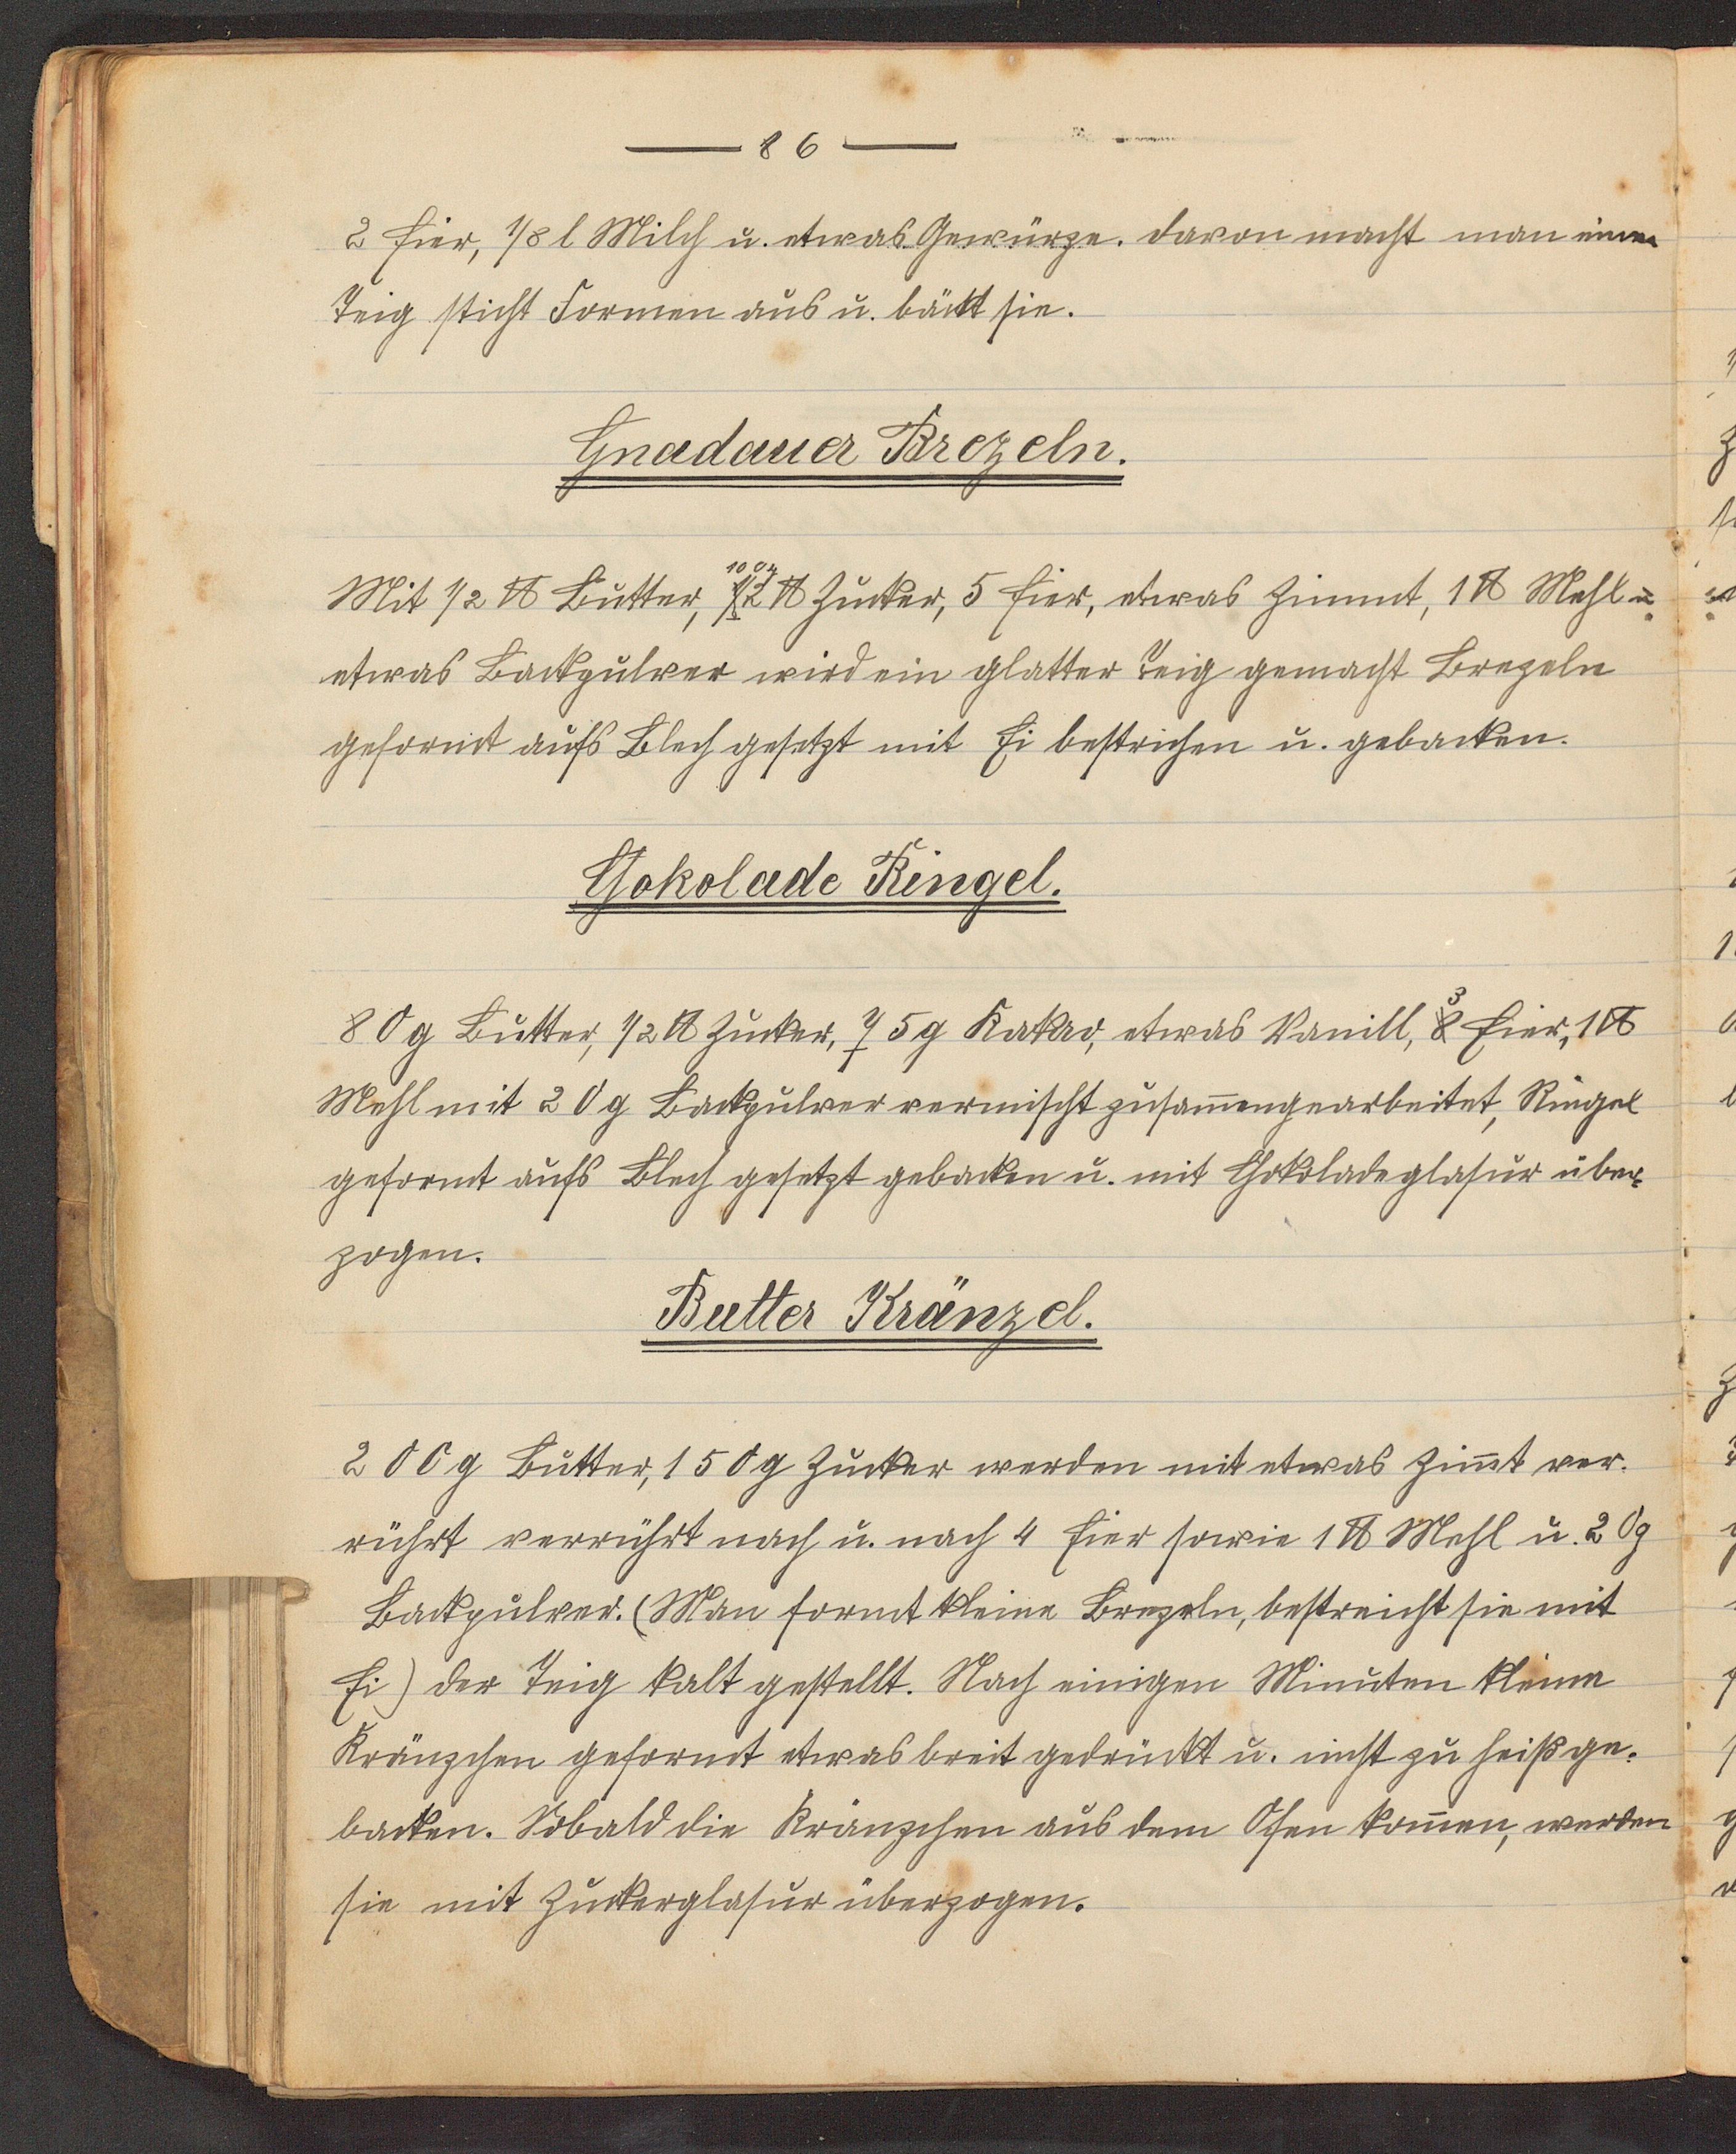 — 86 —
2 Eier, 1/8 l Milch u. etwas Gewürze. Davon macht man einen
Teig sticht Formen aus u. bäckt sie.
Gnadauer Brezeln.
Mit 1/2 ℔ Butter, 1/2 ℔ Zucker, 5 Eier, etwas Zimmt, 1 ℔ Mehl u.
etwas Backpulver wird ein glatter Teig gemacht Brezeln
geformt aufs Blech gesetzt mit Ei bestrichen u. gebacken.
Chokolade Ringel.
80 g Butter, 1/2 ℔ Zucker, 75 g Kakao, etwas Vanill, 3 Eier, 1 ℔
Mehl mit 20 g Backpulver vermischt zusam̅engearbeitet, Ringel
geformt aufs Blech gesetzt gebacken u. mit Chokoladeglasur über-
zogen.
Butter Kränzel.
200 g Butter, 150 g Zucker werden mit etwas Zim̅t ver-
rührt verrührt nach u. nach 4 Eier sowie 1 ℔ Mehl u. 20 g
Backpulver. (Man formt kleine Brezeln, bestreicht sie mit
Ei) der Teig kalt gestellt. Nach einigen Minuten kleine
Kränzchen geformt etwas breit gedrückt u. nicht zu heiß ge-
backen. Sobald die Kränzchen aus dem Ofen kom̅en, werden
sie mit Zuckerglasur überzogen.